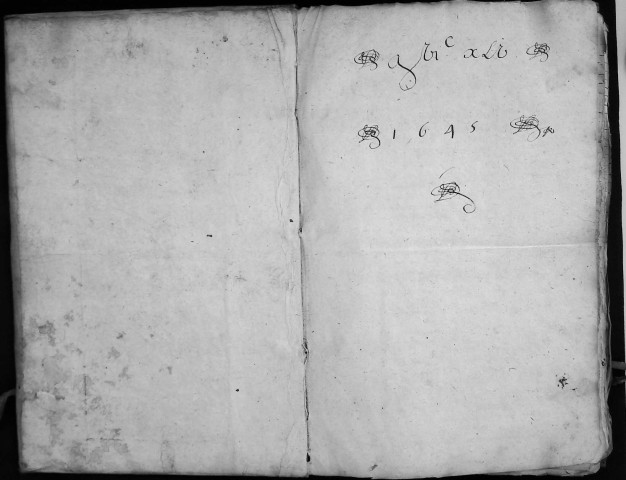 xvi^c xlv
1645